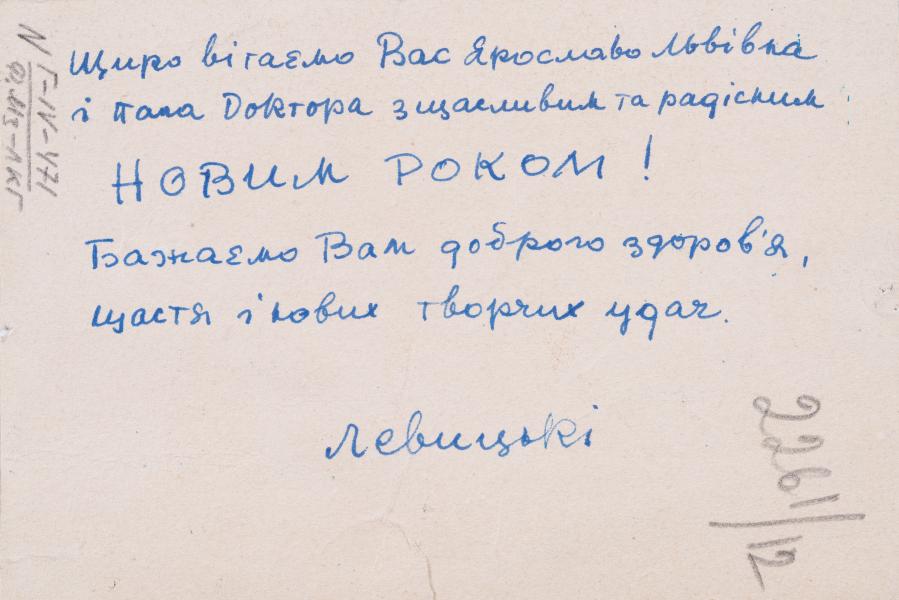 Щиро вітаємо Вас Ярославо Львівна
і пана Доктора з щасливим та радісним
НОВИМ РОКОМ!
Бажаємо Вам доброго здоров'я,
щастя і нових творчих удач.
Левицькі
2261/12
N Г-IV-471